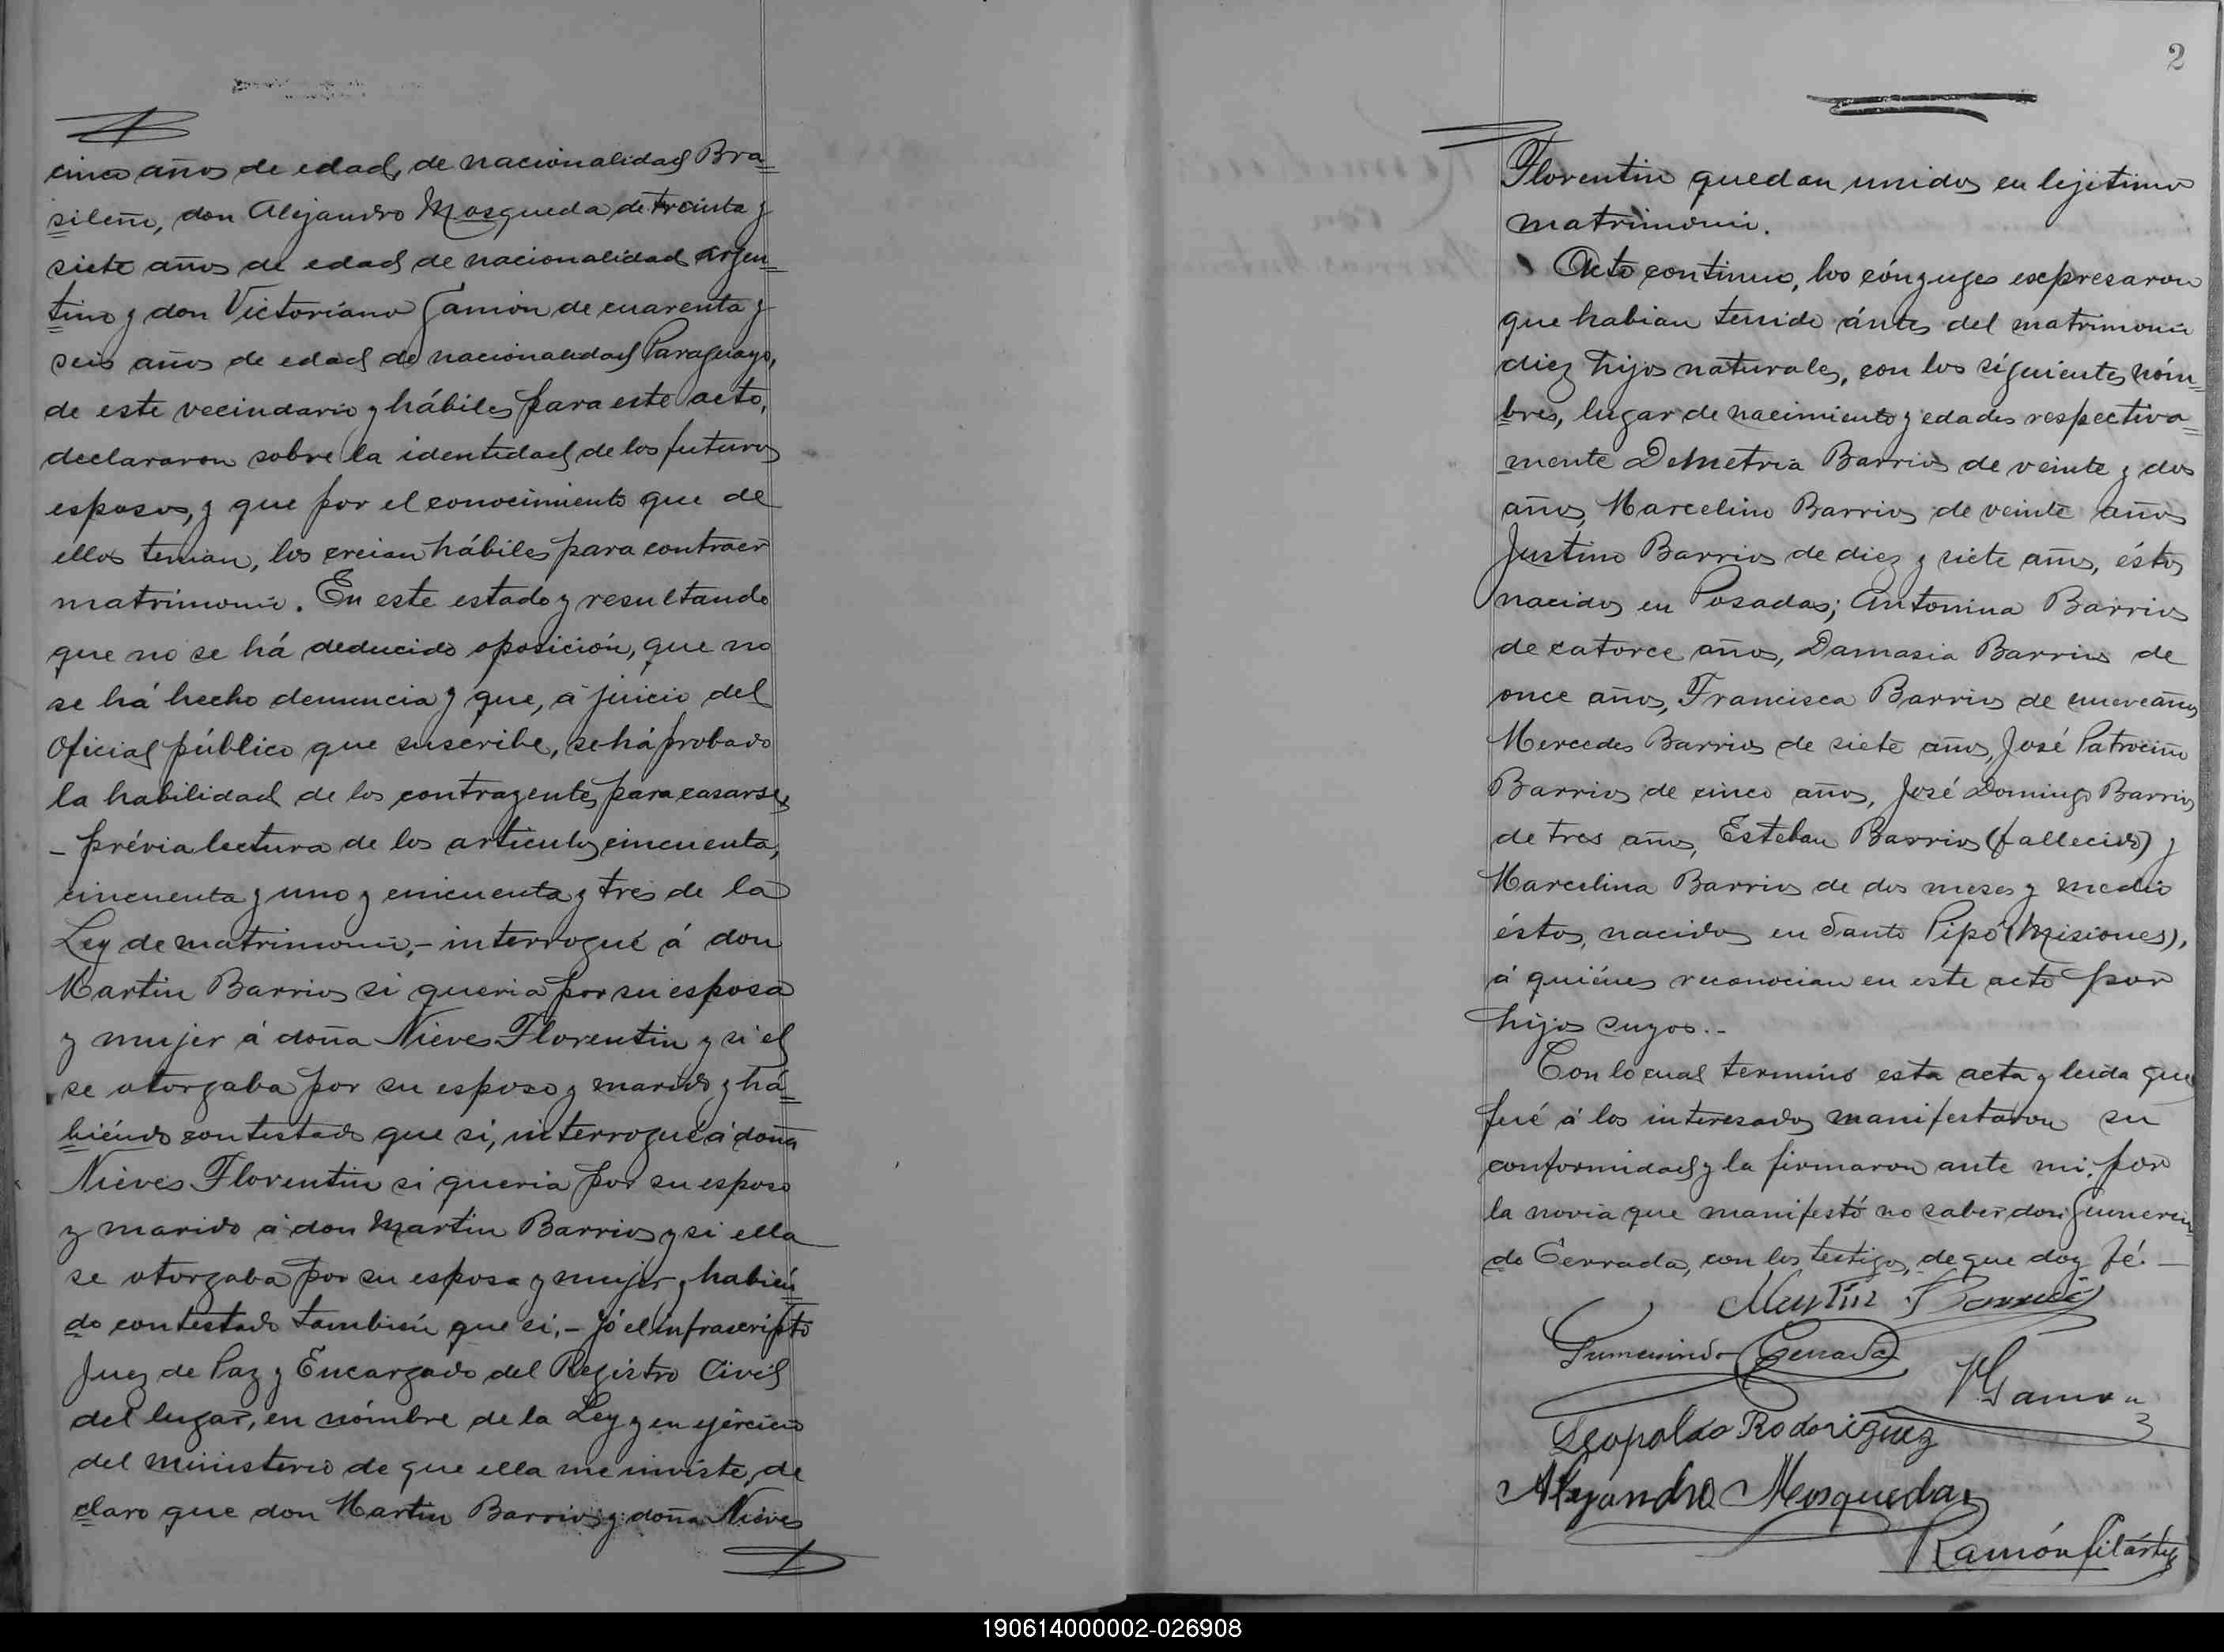 cinco años de edad, de nacionalidad Bra=
sileño, don Alejandro Mosqueda de treinta y
siete años de edad de nacionalidad argen=
tino y don Victoriano Gamón de cuarenta y
seis años de edad de nacionalidad Paraguayo,
de este vecindario y hábiles para este acto,
declararon sobre la identidad de los futuros
esposos, y que por el conocimiento que de
ellos tenian, los creian hábiles para contraer
matrimonio. En este estado y resultando
que no se há deducido oposición, que no
se há hecho denuncia y que, á juicio del
Oficial público que suscribe, se há probado
la habilidad de los contrayentes para casarse,
- prévia lectura de los articulos cincuenta,
cincuenta y uno y cincuenta y tres de la
Ley de matrimonio, - interrogué á don
Martin Barrios si queria por su esposa
y mujer á doña Nieves Florentin y si él
se otorgaba por su esposo y marido y há=
biéndo contestado que si, interrogué á doña
Nieves Florentin si queria por su esposo
y marido á don Martin Barrios y si ella
se otorgaba por su esposa y mujer y habién
do contestado también que si, - yó el infrascripto
Juez de Paz y Encargado del Registro Civil
del lugar, en nómbre de la Ley y en ejércicio
del ministerio de que ella me inviste, de
claro que don Martin Barrios y doña Nieves
2
Florentin quedan unidos en lejitimo
matrimonio.
Acto continuo, los cónyuges expresaron
que habian tenido ántes del matrimonio
diez hijos naturales, con los siguientes nóm=
bres, lugar de nacimiento y edades respectiva=
mente Demetria Barrios de veinte y dos
años, Marcelino Barrios de veinte años
Justino Barrios de diez y siete años, éstos
nacidos en Posadas; Antonina Barrios
de catorce años, Damasia Barrios de
once años, Francisca Barrios de nueve años
Mercedes Barrios de siete años, José Patrocinio
Barrios de cinco años, José Domingo Barrios
de tres años, Esteban Barrios (fallecido) y
Marcelina Barrios de dos meses y medio
éstos, nacidos en Santo Pipó (Misiones),
á quiénes reconocian en este acto por
hijos suyos.-
Con lo cual terminó esta acta y leida que
fué á los interesados manifestaron su
conformidad y la firmaron ante mi, por
la novia que manifestó no saber don Gumersin
do Cerrada, con los testigos, de que doy fé. -
Martin Barrios
Gumersindo Cerrada
V Gamon
Leopoldo Rodoriguez
Alejandro Mosqueda
Ramón
190614000002-026908